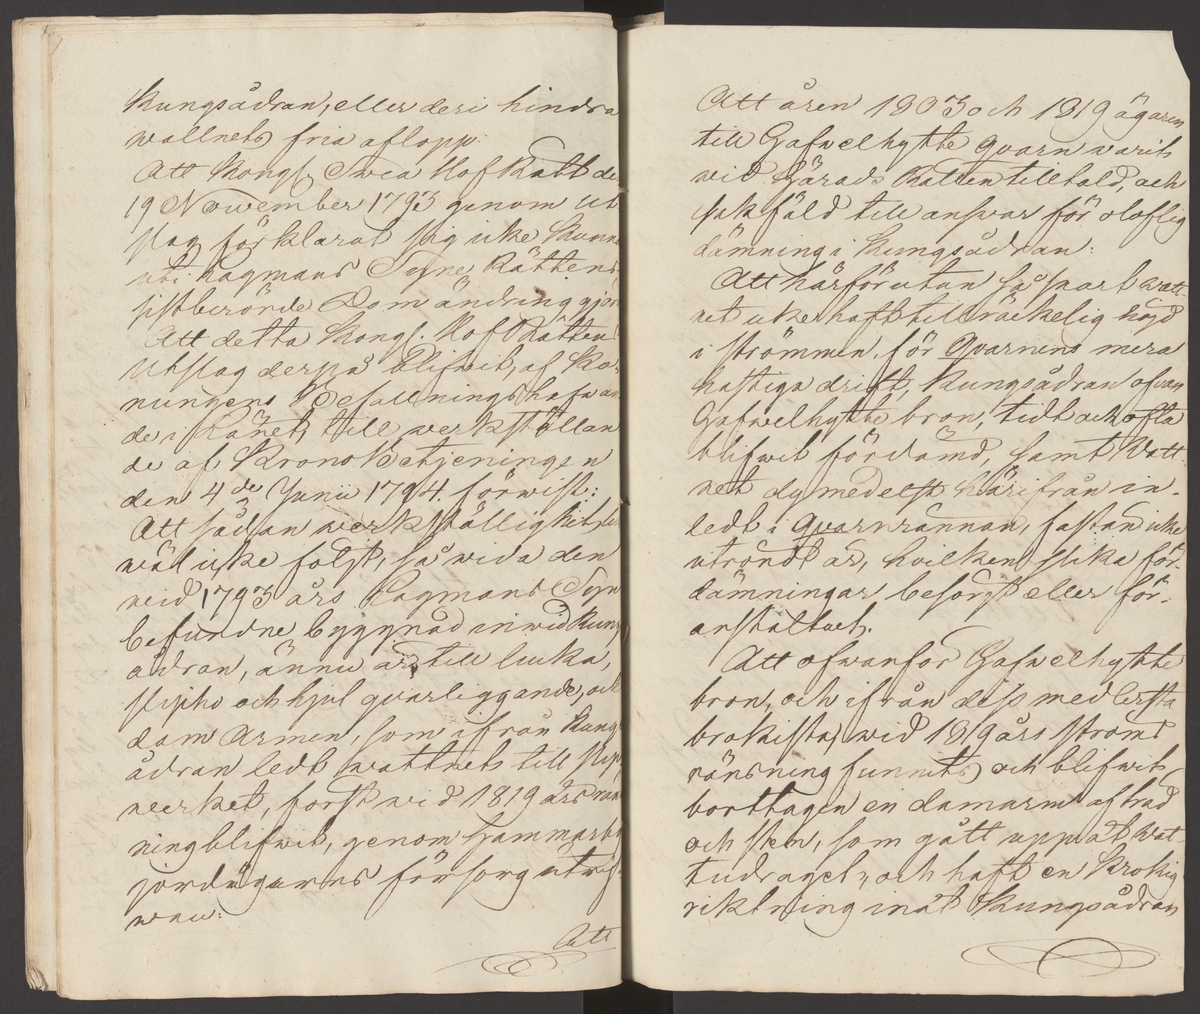 Kungsådran, eller deri hindra
wattnets fria aflopp.
Att Kongl. Swea HofRätt de
19 November 1793 genom ut
slag förklarat sig icke kunna
uti Lagmans Syne Rättens
sistberörde Dom ändring göra
Att detta Kongl. HofRättens
Utslag derpå blifwit, af Ko
nungens Befallningshafwan
de i Länet, till werkställan
de af KronoBetjeningen
den 4de Junii 1794. förwist:
Att sådan werkställighet lik
wäl icke följt, så wida den
wid 1793 års Lagmans Syn
befundne byggnad inwid Kungs
ådran, ännu är till lucka,
slipho och hjul qvarliggande, och
dam Armen, som ifrån Kungs
ådran ledt wattnets till slip
werket, först wid 1819 års räns
ning blifwit, genom Hammarby
jordägares försorg utrif
wen:
Att
Att åren 1803 och 1819 ägaren
till Gafwelhytte qvarn warit
wid Härads Rätten tilltald, och
sakfäld till answar för oloflig
dämning i Kungsådran:
Att härförutan så snart watt
net icke haft tillräckelig höjd
i strömmen, för Qvarnens mera
hastiga drift, Kungsådran ofwan
Gafwelhytte bron, tidt och ofta
blifwit fördämd, samt Watt
net dymedelst härifrån in-
ledt i Qvarnrännan, fastän icke
utrönt är, hvilken slika för-
dämningar besörgt eller för-
anstaltat.
Att ofwanför Gafwelhytte
bron, och ifrån dess medlersta
brokista, wid 1819 års ströms
ränsning funnits och blifwit
borttagen en damarm af träd
och sten, som gått uppåt Wat-
tudraget, och haft en krokig
riktning inåt Kungsådran